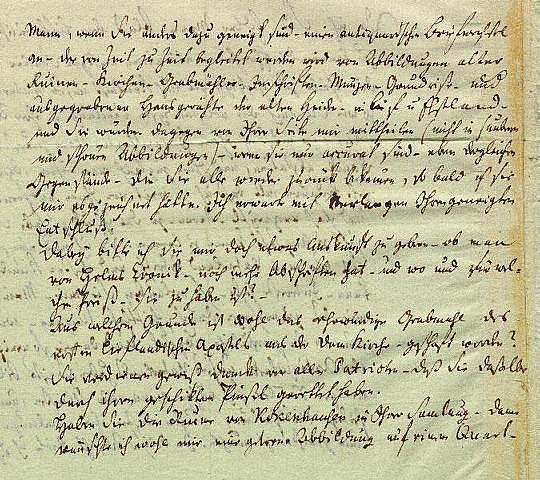 Mann, wenn Sie anders dazu geneigt sind - einen antiquarische Briefwechsel
an - der von Zeit zu Zeit begleitet werden wird von Abbildungen alter
Ruinen - Kirchen - Grabmähler - Inschriften - Münzen - Grundriße - und
ausgegrabener Hausgeräthe der alten Heiden - in Lief u Ehstland -
und Sie würden dagegen von Ihrer Seite mir mittheilen (nicht in saubere
und schöne Abbildungen) - wenn sie nur accurat sind - eben dergleichen
Gegenstände - die Sie alle wieder zurück bekommen, so bald ich sie
mir abgezeichnet hätte. Ich erwarte mit Verlangen Ihren geneigten
Entschluß.
Dabey bitte ich Sie mir doch etwas Auskunft zu geben - ob man
von Helms Cronik - noch mehr Abschriften hat - und wo und zu wel-
chen Preiß - sie zu haben ist? -
Aus welchem Grunde ist wohl das ehrwürdige Grabmahl des
ersten Lieflandischen Apostels aus der Dom Kirche - geschaft worden?
Sie verdienen gewiß Danck von allen Patrioten - daß Sie daßelbe
durch ihren geschickten Pinsel gerettet haben.
Haben Sie die Ruine von Kokenhausen in Ihrer Samlung - dann
wünschte ich wohl mir eine getreue Abbildung auf einen Quart-